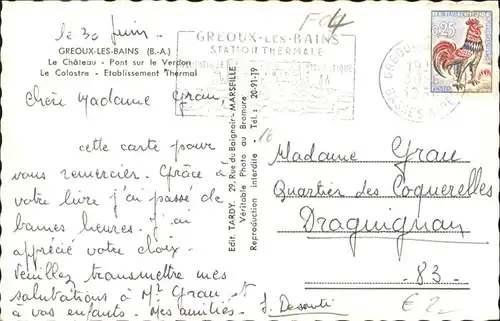 le 30 Juin.
GREOUX-LES-BAINS (B.-A.)
Le Château - Pont sur le Verdon
Le Colostre - Etablissement Thermal
Chère Madame Grau,
cette carte pour
vous remercier. Grâce à
votre livre j'ai passé de
bonnes heures. J'ai
apprécié votre choix.
Veuillez transmettre mes
salutations à Mr Grau et
à vos enfants. Mes amitiés.
Edit. TARDY, 29, Rue du Baignoir - MARSEILLE
Véritable Photo au Bromure
Reproduction interdite - Tél.: 20-91-19
GREOUX-LES-BAINS
STATION THERMALE
GREOUX
0,25
POSTES
Madame Grau
Quartier des Coquerelles
Draguignan
- 83 -
€ 2